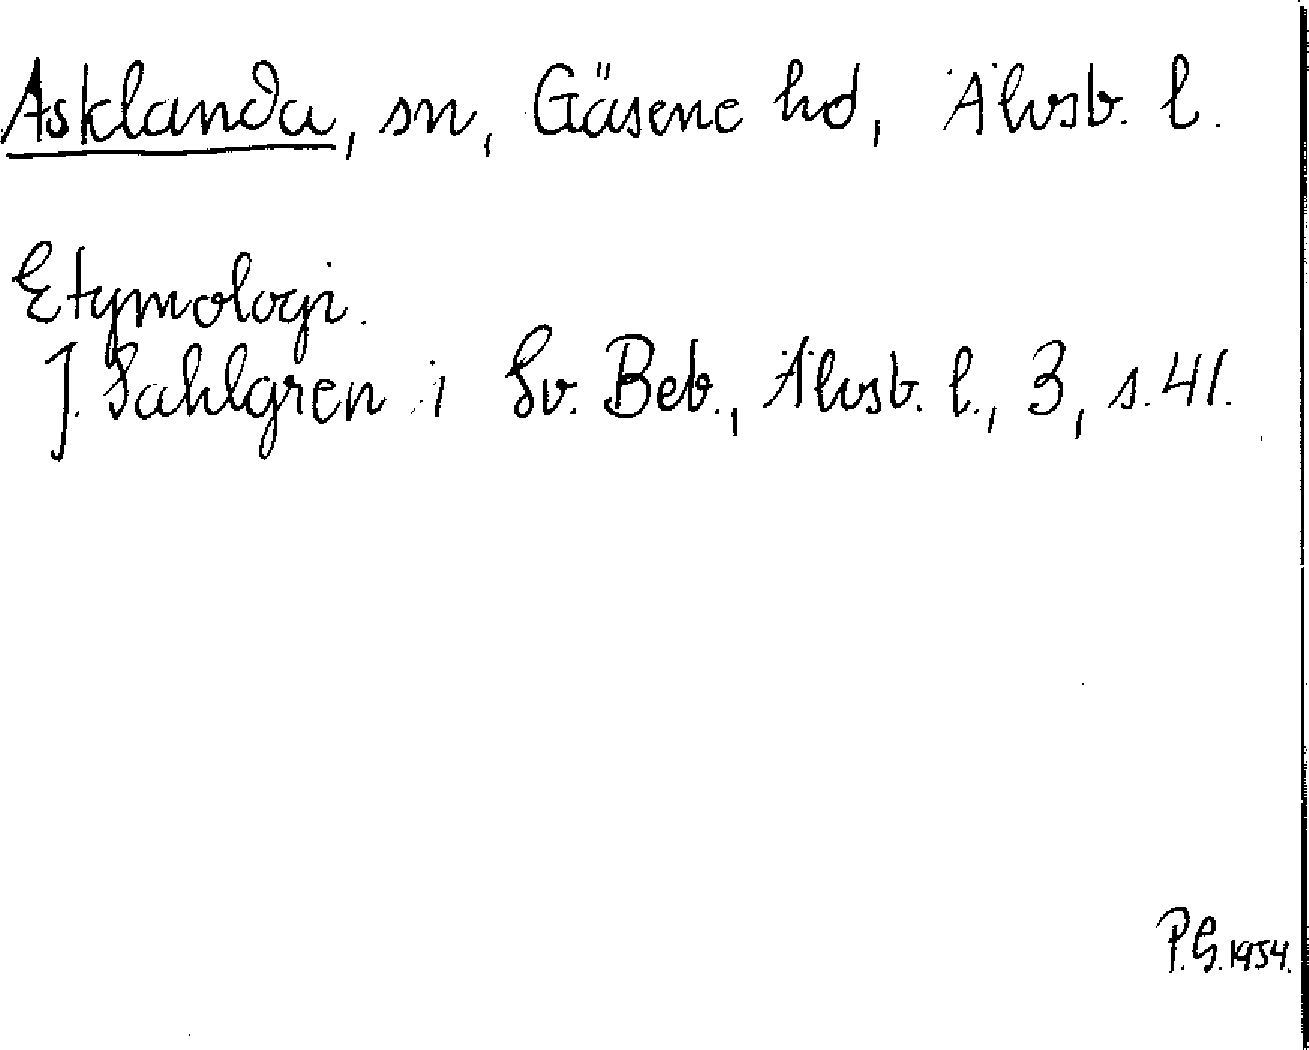 Asklanda, sn, Gäsene hd, Älvsb. l.
Etymologi.
J. Sahlgren i Sv. Beb., Älvsb. l., 3, s. 41.
P.G. 1954.